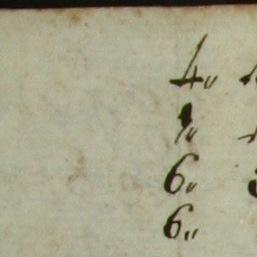 4"
1"
6"
6"